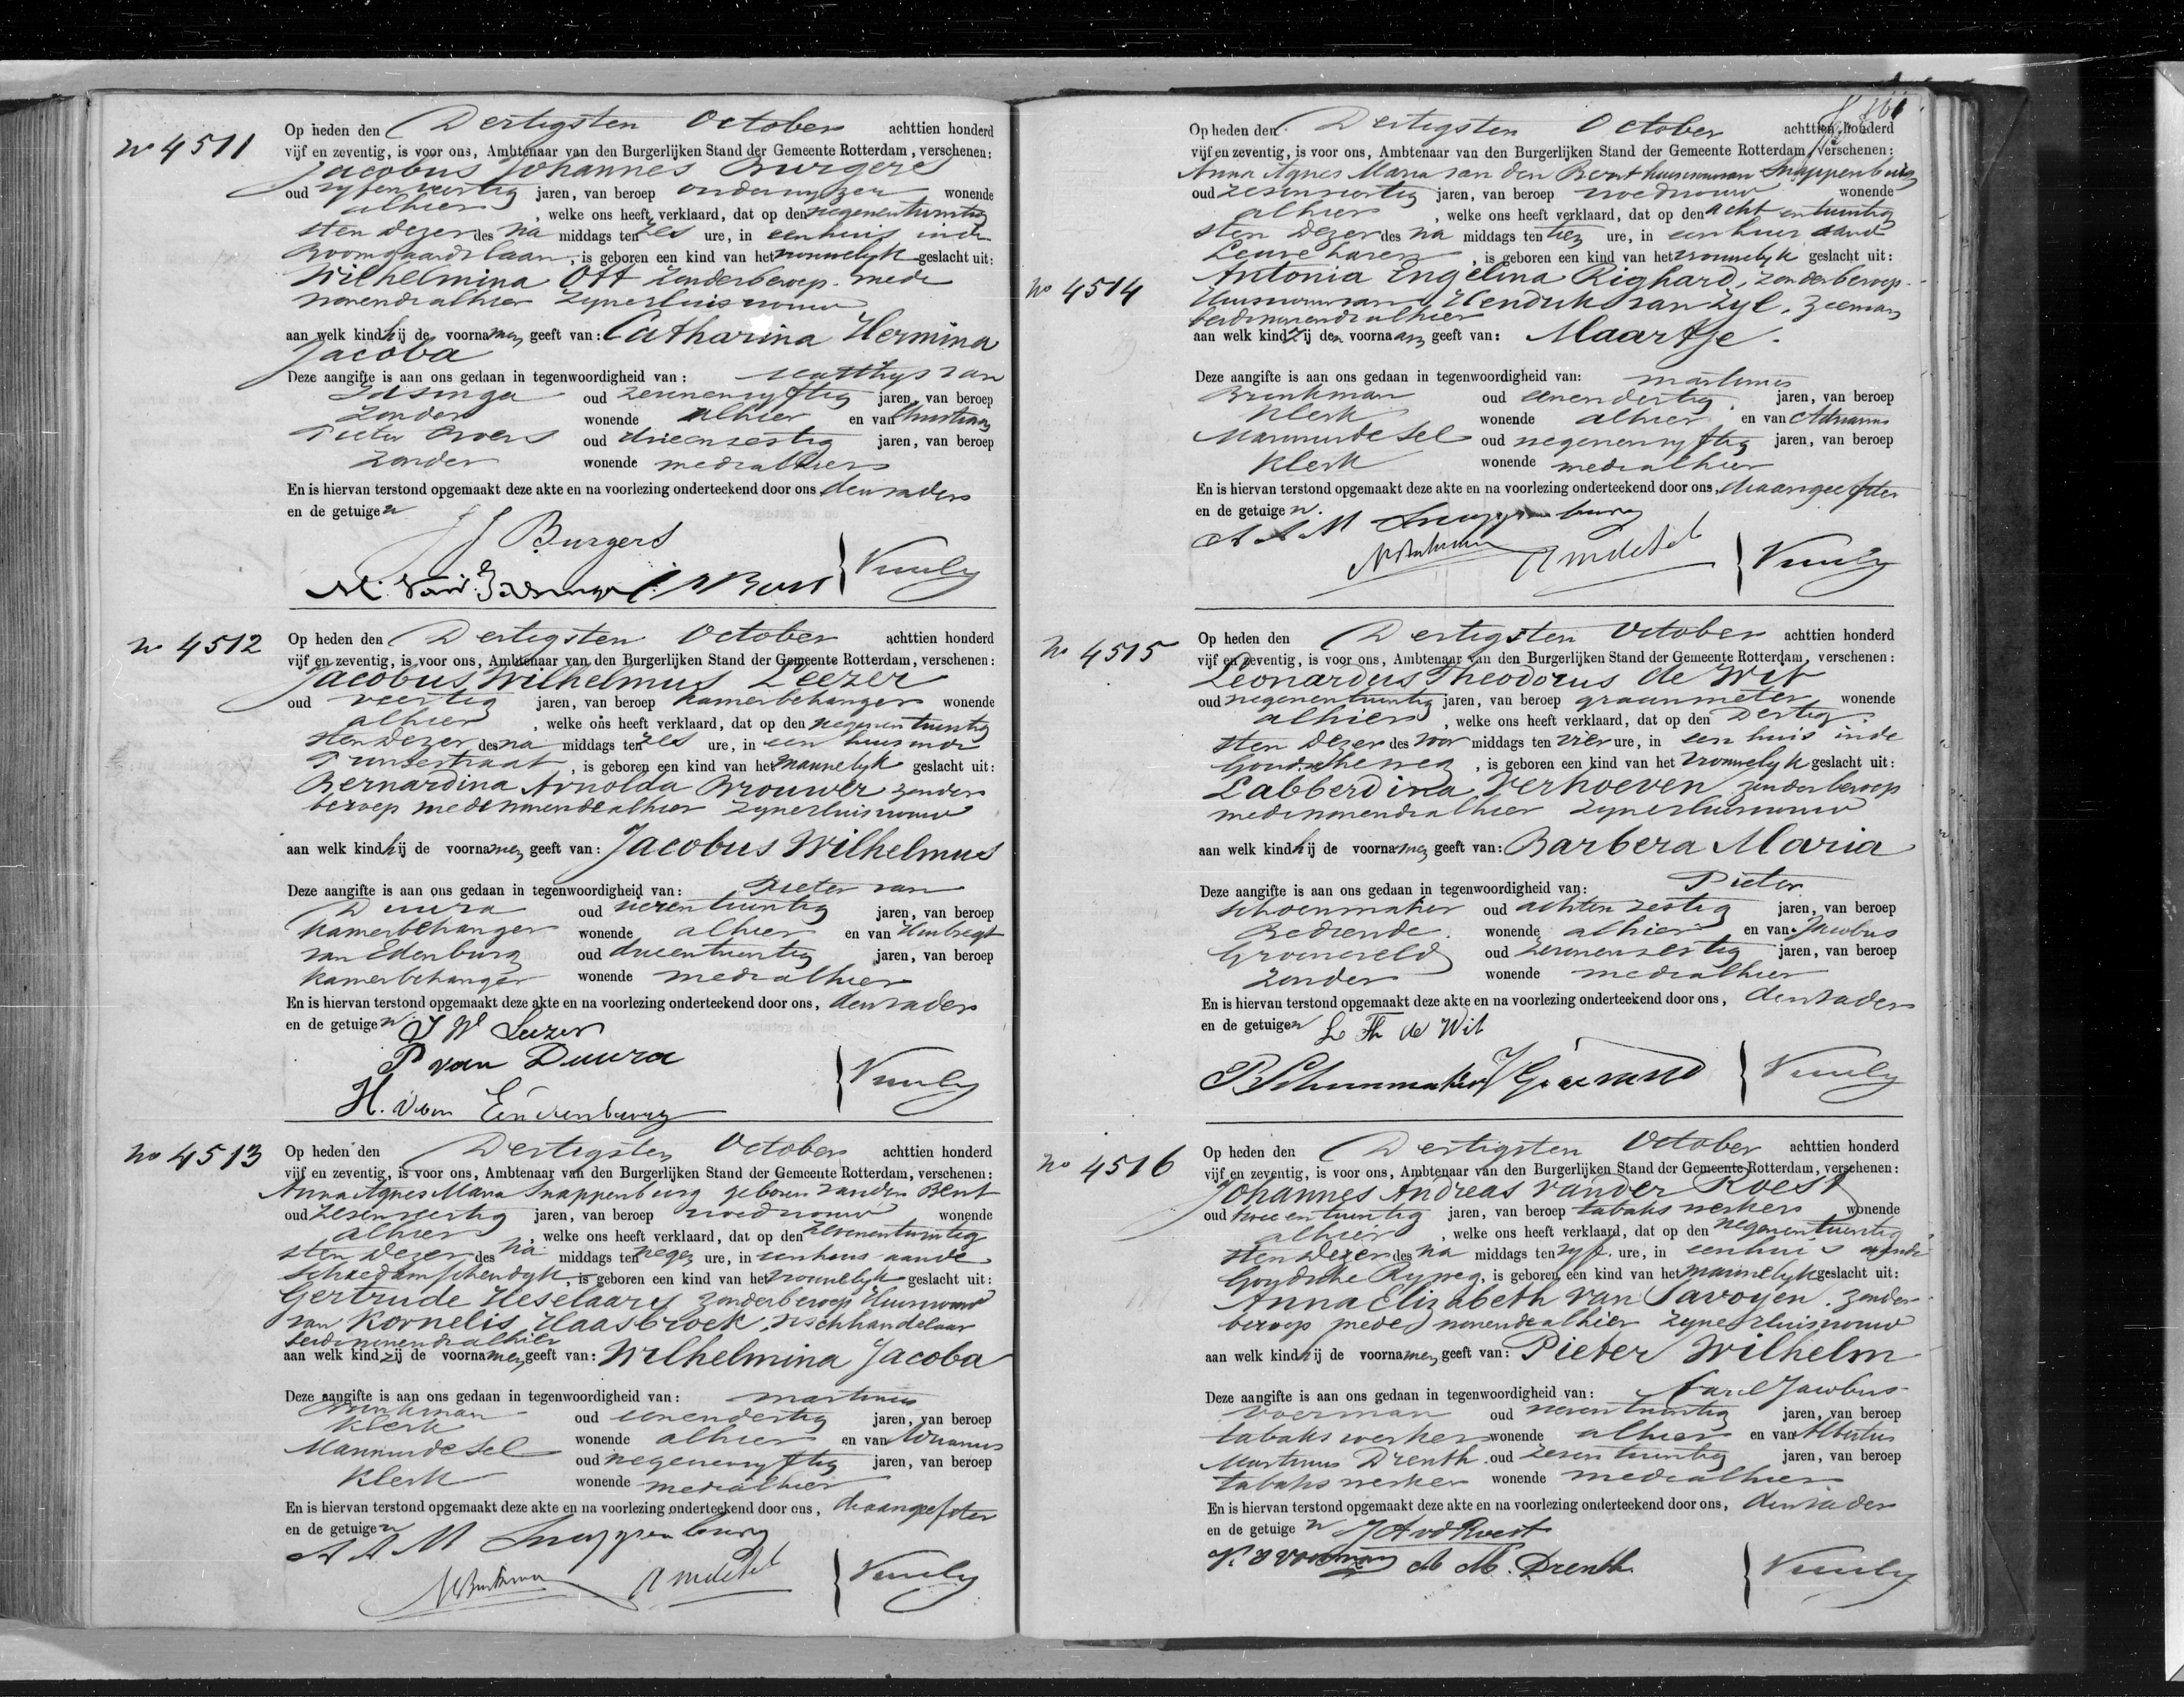 No 4511
Op heden den Dertigsten October achttien honderd
vijf en zeventig, is voor ons, Ambtenaar van den Burgerlijken Stand der Gemeente Rotterdam, verschenen:
Jacobus Johannes Burgers
oud vyfenveertig jaren, van beroep onderwyzer wonende
alhier, welke ons heeft verklaard, dat op den negenentwintig
sten dezer des na middags ten zes ure, in een huis in de
Boomgaardslaan, is geboren een kind van het vrouwelyk geslacht uit:
Wilhelmina Ott zonder beroep mede
wonende alhier zyne huisvrouw
aan welk kind hij de voornamen geeft van: Catharina Hermina
Jacoba
Deze aangifte is aan ons gedaan in tegenwoordigheid van: Matthys van
Idsinga oud zevenenvyftig jaren, van beroep
zonder wonende alhier en van Christiaan
Pieter Broers oud drieenzestig jaren, van beroep
zonder wonende mede alhier
En is hiervan terstond opgemaakt deze akte en na voorlezing onderteekend door ons den vader
en de getuigen
J J Burgers
M. van Idsinga
No 4512
Op heden den Dertigsten October achttien honderd
vijf en zeventig, is voor ons, Ambtenaar van den Burgerlijken Stand der Gemeente Rotterdam, verschenen:
Jacobus Wilhelmus Leezer
oud veertig jaren, van beroep kamerbehanger wonende
alhier, welke ons heeft verklaard, dat op den negenentwintig
sten dezer des na middags ten zes ure, in een huis in de
straat, is geboren een kind van het mannelyk geslacht uit:
Bernardina Arnolda Brouwer zonder
beroep mede wonende alhier zyne huisvrouw
aan welk kind hij de voornamen geeft van: Jacobus Wilhelmus
Deze aangifte is aan ons gedaan in tegenwoordigheid van: Pieter van
Duura oud vierentwintig jaren, van beroep
kamerbehanger wonende alhier en van Huibregt
van Edenburg oud drieentwintig jaren, van beroep
kamerbehanger wonende mede alhier
En is hiervan terstond opgemaakt deze akte en na voorlezing onderteekend door ons, den vader
en de getuigen
J W Leezer
P van Duura
H. van
No 4513
Op heden den Dertigsten October achttien honderd
vijf en zeventig, is voor ons, Ambtenaar van den Burgerlijken Stand der Gemeente Rotterdam, verschenen:
Anna Agnes Maria Snappenburg geboren van den Bent
oud zesenveertig jaren, van beroep vroedvrouw wonende
alhier, welke ons heeft verklaard, dat op den zevenentwintig
sten dezer des na middags ten negen ure, in een huis aan de
Schiedamschendyk, is geboren een kind van het vrouwelyk geslacht uit:
Gertrude Heselaars zonder beroep Huisvrouw
van Kornelis Haasbroek, vischhandelaar
beide wonende alhier
aan welk kind zij de voornamen geeft van: Wilhelmina Jacoba
Deze aangifte is aan ons gedaan in tegenwoordigheid van: Martinus
Brinkman oud eenendertig jaren, van beroep
Klerk wonende alhier en van Adrianus
Marinus de Sel oud negenenvyftig jaren, van beroep
Klerk wonende mede alhier
En is hiervan terstond opgemaakt deze akte en na voorlezing onderteekend door ons, de aangeefster
en de getuigen
A A M Snappenburg
Op heden den Dertigsten October achttien honderd
vijf en zeventig, is voor ons, Ambtenaar van den Burgerlijken Stand der Gemeente Rotterdam, verschenen:
Anna Agnes Maria van den Bent huisvrouw van Snappenburg
oud zesenveertig jaren, van beroep vroedvrouw wonende
alhier, welke ons heeft verklaard, dat op den acht entwintig
sten dezer des na middags ten tien ure, in een huis aan de
Leuvehaven, is geboren een kind van het vrouwelyk geslacht uit:
No 4514
Antonia Engelina Righard, zonder beroep
Huisvrouw van Hendrik van Zyl, zeeman
beide wonende alhier
aan welk kind zij den voornaam geeft van: Maartje.
Deze aangifte is aan ons gedaan in tegenwoordigheid van: Martinus
Brinkman oud eenendertig jaren, van beroep
Klerk wonende alhier en van Adrianus
Marinus de Sel oud negenenvyftig jaren, van beroep
Klerk wonende mede alhier
En is hiervan terstond opgemaakt deze akte en na voorlezing onderteekend door ons, de aangeefster
en de getuigen.
A A M Snappenburg
No 4515
Op heden den Dertigsten October achttien honderd
vijf en zeventig, is voor ons, Ambtenaar van den Burgerlijken Stand der Gemeente Rotterdam, verschenen:
Leonardus Theodorus de Wit
oud negenentwintig jaren, van beroep graanmeter wonende
alhier, welke ons heeft verklaard, dat op den Dertig
sten dezer des voor middags ten vier ure, in een huis in de
Goudscheweg, is geboren een kind van het vrouwelyk geslacht uit:
Labberdina Verhoeven zonder beroep
mede wonende alhier zyne huisvrouw
aan welk kind hij de voornamen geeft van: Barbera Maria
Deze aangifte is aan ons gedaan in tegenwoordigheid van: Pieter
Schoenmaker oud achtenzestig jaren, van beroep
Bediende wonende alhier en van Jacobus
Groeneveld oud zevenenzestig jaren, van beroep
zonder wonende mede alhier
En is hiervan terstond opgemaakt deze akte en na voorlezing onderteekend door ons, den vader
en de getuigen
L Th de Wit
P Schoenmaker
No 4516
Op heden den Dertigsten October achttien honderd
vijf en zeventig, is voor ons, Ambtenaar van den Burgerlijken Stand der Gemeente Rotterdam, verschenen:
Johannes Andreas van der Roest
oud tweeentwintig jaren, van beroep tabakswerker wonende
alhier, welke ons heeft verklaard, dat op den negenentwintig
sten dezer des na middags ten vyf ure, in een huis aan de
Goudsche Ryweg, is geboren een kind van het mannelyk geslacht uit:
Anna Elizabeth van Savoyen. zonder
beroep mede wonende alhier zyne huisvrouw
aan welk kind hij de voornamen geeft van: Pieter Wilhelm
Deze aangifte is aan ons gedaan in tegenwoordigheid van: Karel Jacobus
Voerman oud jaren, van beroep
tabakswerker wonende alhier en van Albertus
Martinus Drenth oud zesentwintig jaren, van beroep
tabakswerker wonende mede alhier
En is hiervan terstond opgemaakt deze akte en na voorlezing onderteekend door ons, den vader
en de getuigen
J A vd Roest
A M. Drenth